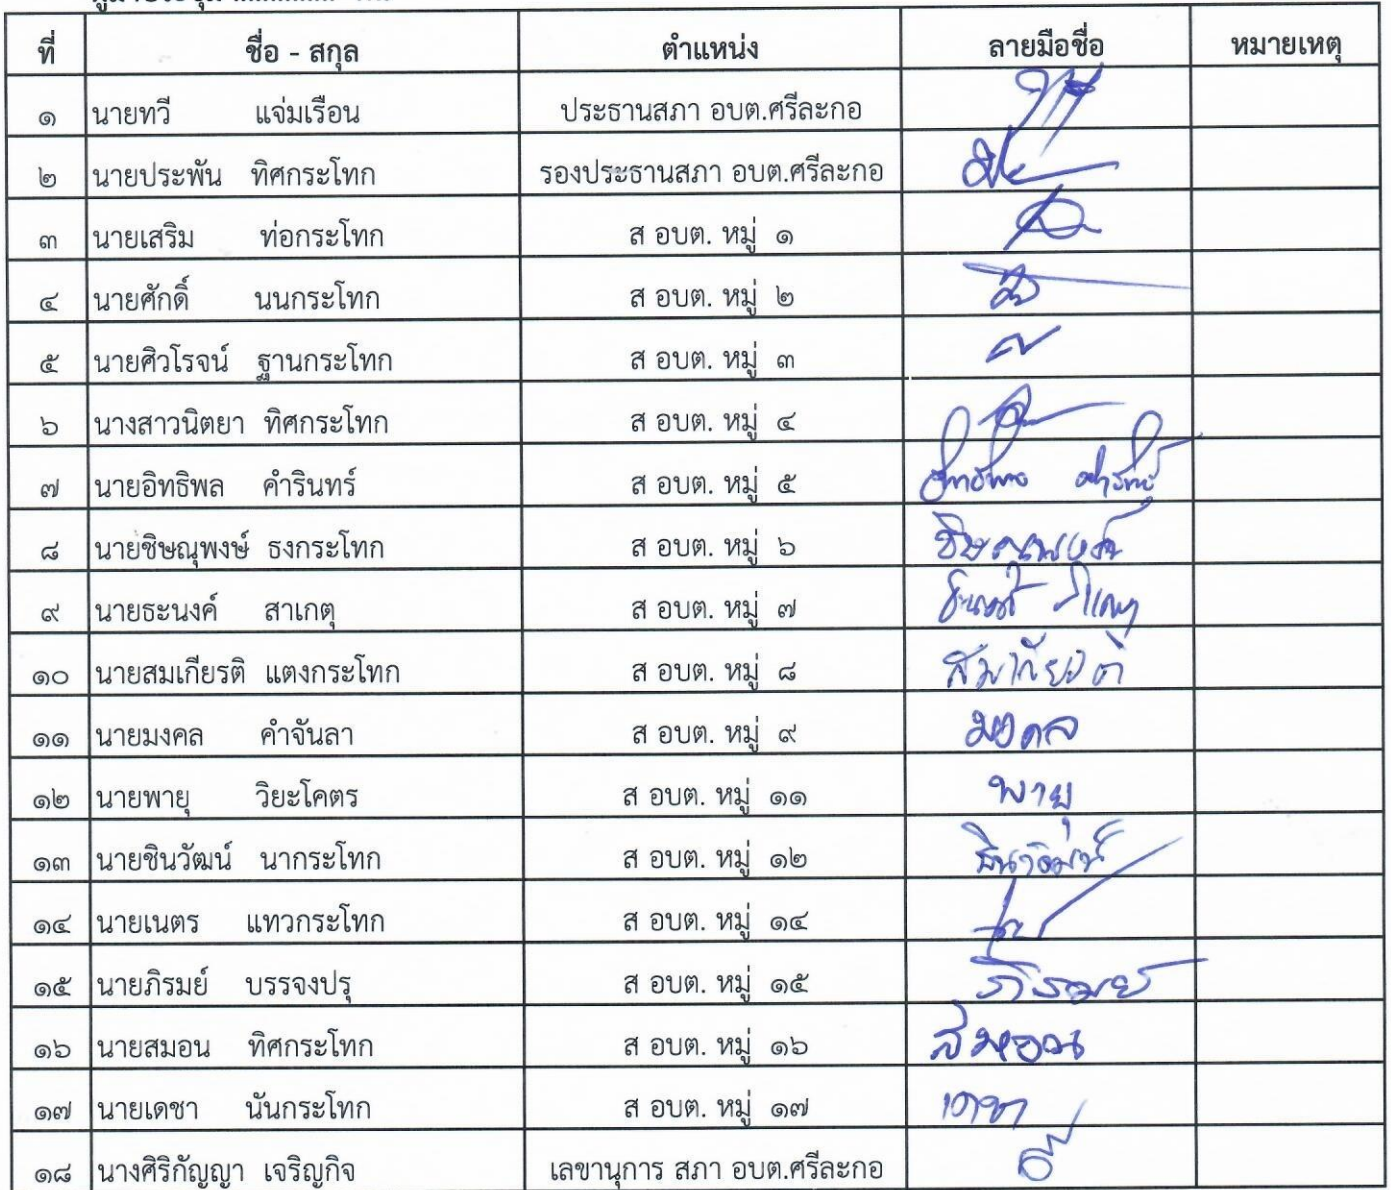 ที่ ชื่อ - สกุล ตำแหน่ง ลายมือชื่อ หมายเหตุ
๑ นายทวี แจ่มเรือน ประธานสภา อบต.ศรีละกอ
๒ นายประพัน ทิศกระโทก รองประธานสภา อบต.ศรีละกอ
๓ นายเสริม ท่อกระโทก ส อบต. หมู่ ๑
๔ นายศักดิ์ นนกระโทก ส อบต. หมู่ ๒
๕ นายศิวโรจน์ ฐานกระโทก ส อบต. หมู่ ๓
๖ นางสาวนิตยา ทิศกระโทก ส อบต. หมู่ ๔
๗ นายอิทธิพล คำรินทร์ ส อบต. หมู่ ๕
๘ นายชิษณุพงษ์ ธงกระโทก ส อบต. หมู่ ๖ ชิษณุพงษ์
๙ นายธะนงค์ สาเกตุ ส อบต. หมู่ ๗
๑๐ นายสมเกียรติ แตงกระโทก ส อบต. หมู่ ๘ สมเกียรติ
๑๑ นายมงคล คำจันลา ส อบต. หมู่ ๙ มงคล
๑๒ นายพายุ วิยะโคตร ส อบต. หมู่ ๑๑ พายุ
๑๓ นายชินวัฒน์ นากระโทก ส อบต. หมู่ ๑๒ ชินวัฒน์
๑๔ นายเนตร แทวกระโทก ส อบต. หมู่ ๑๔
๑๕ นายภิรมย์ บรรจงปรุ ส อบต. หมู่ ๑๕ ภิรมย์
๑๖ นายสมอน ทิศกระโทก ส อบต. หมู่ ๑๖ สมอน
๑๗ นายเดชา นันกระโทก ส อบต. หมู่ ๑๗ เดชา
๑๘ นางศิริกัญญา เจริญกิจ เลขานุการ สภา อบต.ศรีละกอ